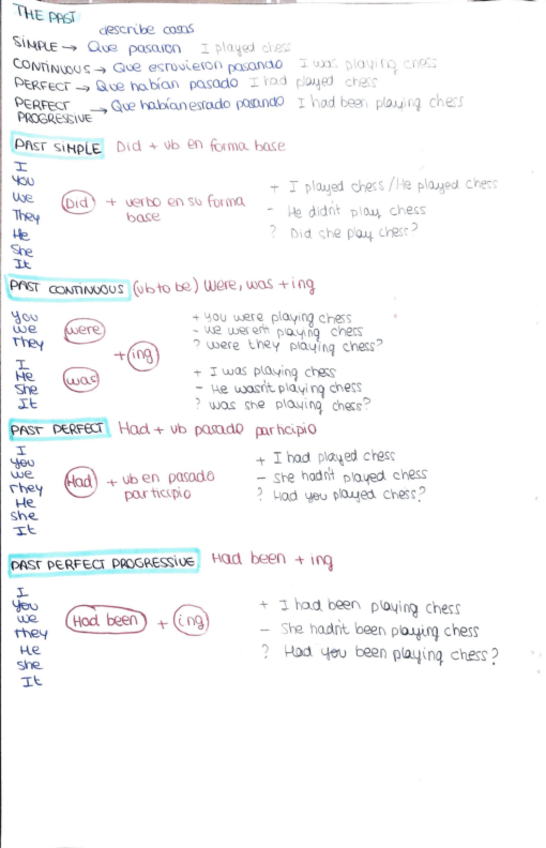 THE PAST
describe cosas
SIMPLE → Que pasaron I played chess
CONTINUOUS → Que estuvieron pasando I was playing chess
PERFECT → Que habían pasado I had played chess
PERFECT PROGRESSIVE → Que habían estado pasando I had been playing chess
PAST SIMPLE Did + vb en forma base
I
You
We
They
He
She
It
Did + verbo en su forma base
+ I played chess / He played chess
- He didn't play chess
? Did she play chess?
PAST CONTINUOUS (vb to be) Were, was + ing
You
We
They
were
I
He
She
It
was
+ ing
+ You were playing chess
- We weren't playing chess
? were they playing chess?
+ I was playing chess
- He wasn't playing chess
? was she playing chess?
PAST PERFECT Had + vb pasado participio
I
You
We
They
He
She
It
Had + vb en pasado participio
+ I had played chess
- She hadn't played chess
? Had you played chess?
PAST PERFECT PROGRESSIVE Had been + ing
I
You
We
They
He
She
It
Had been + ing
+ I had been playing chess
- She hadn't been playing chess
? Had you been playing chess?